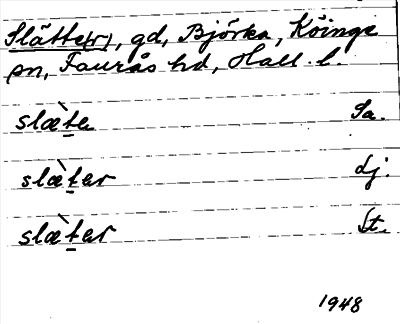 Slätte(r), gd, Björka, Köinge
sn, Faurås hd, Hall. l.
slæ̀te Sa.
slæ̀ter dj.
slæ̀ter St.
1948